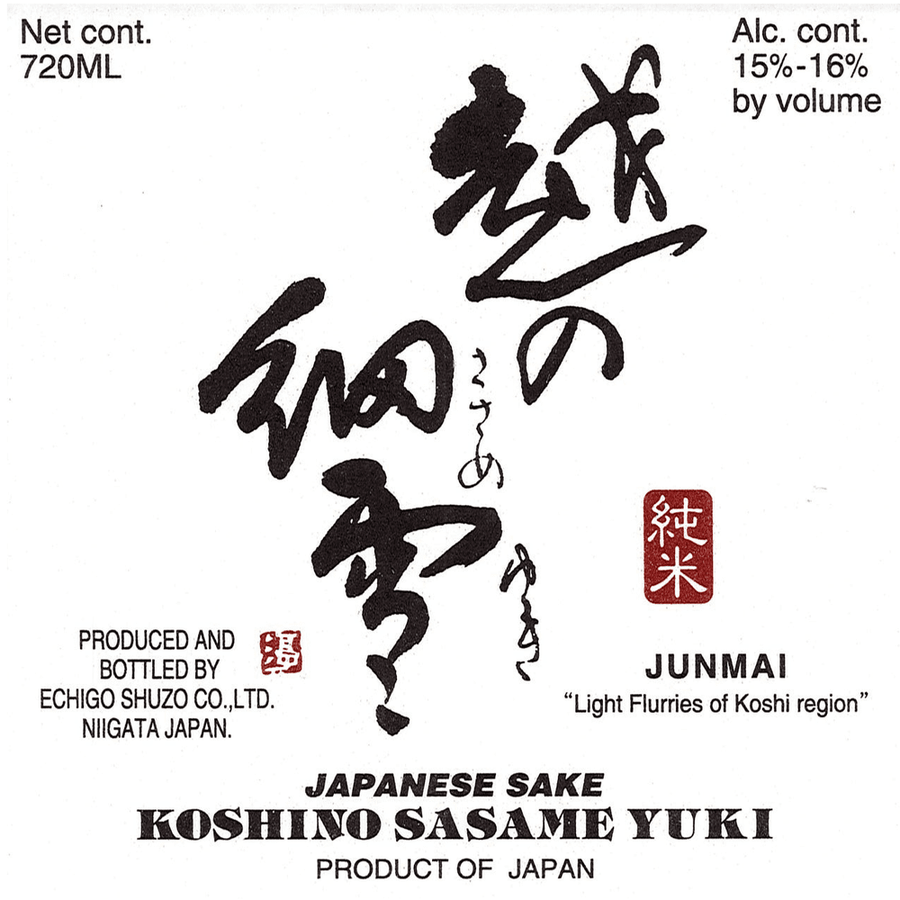 Net cont.
720ML
Alc. cont.
15%-16%
by volume
越の
細雪
ささめ
ゆき
純米
JUNMAI
“Light Flurries of Koshi region”
PRODUCED AND
BOTTLED BY
ECHIGO SHUZO CO.,LTD.
NIIGATA JAPAN.
JAPANESE SAKE
KOSHINO SASAME YUKI
PRODUCT OF JAPAN